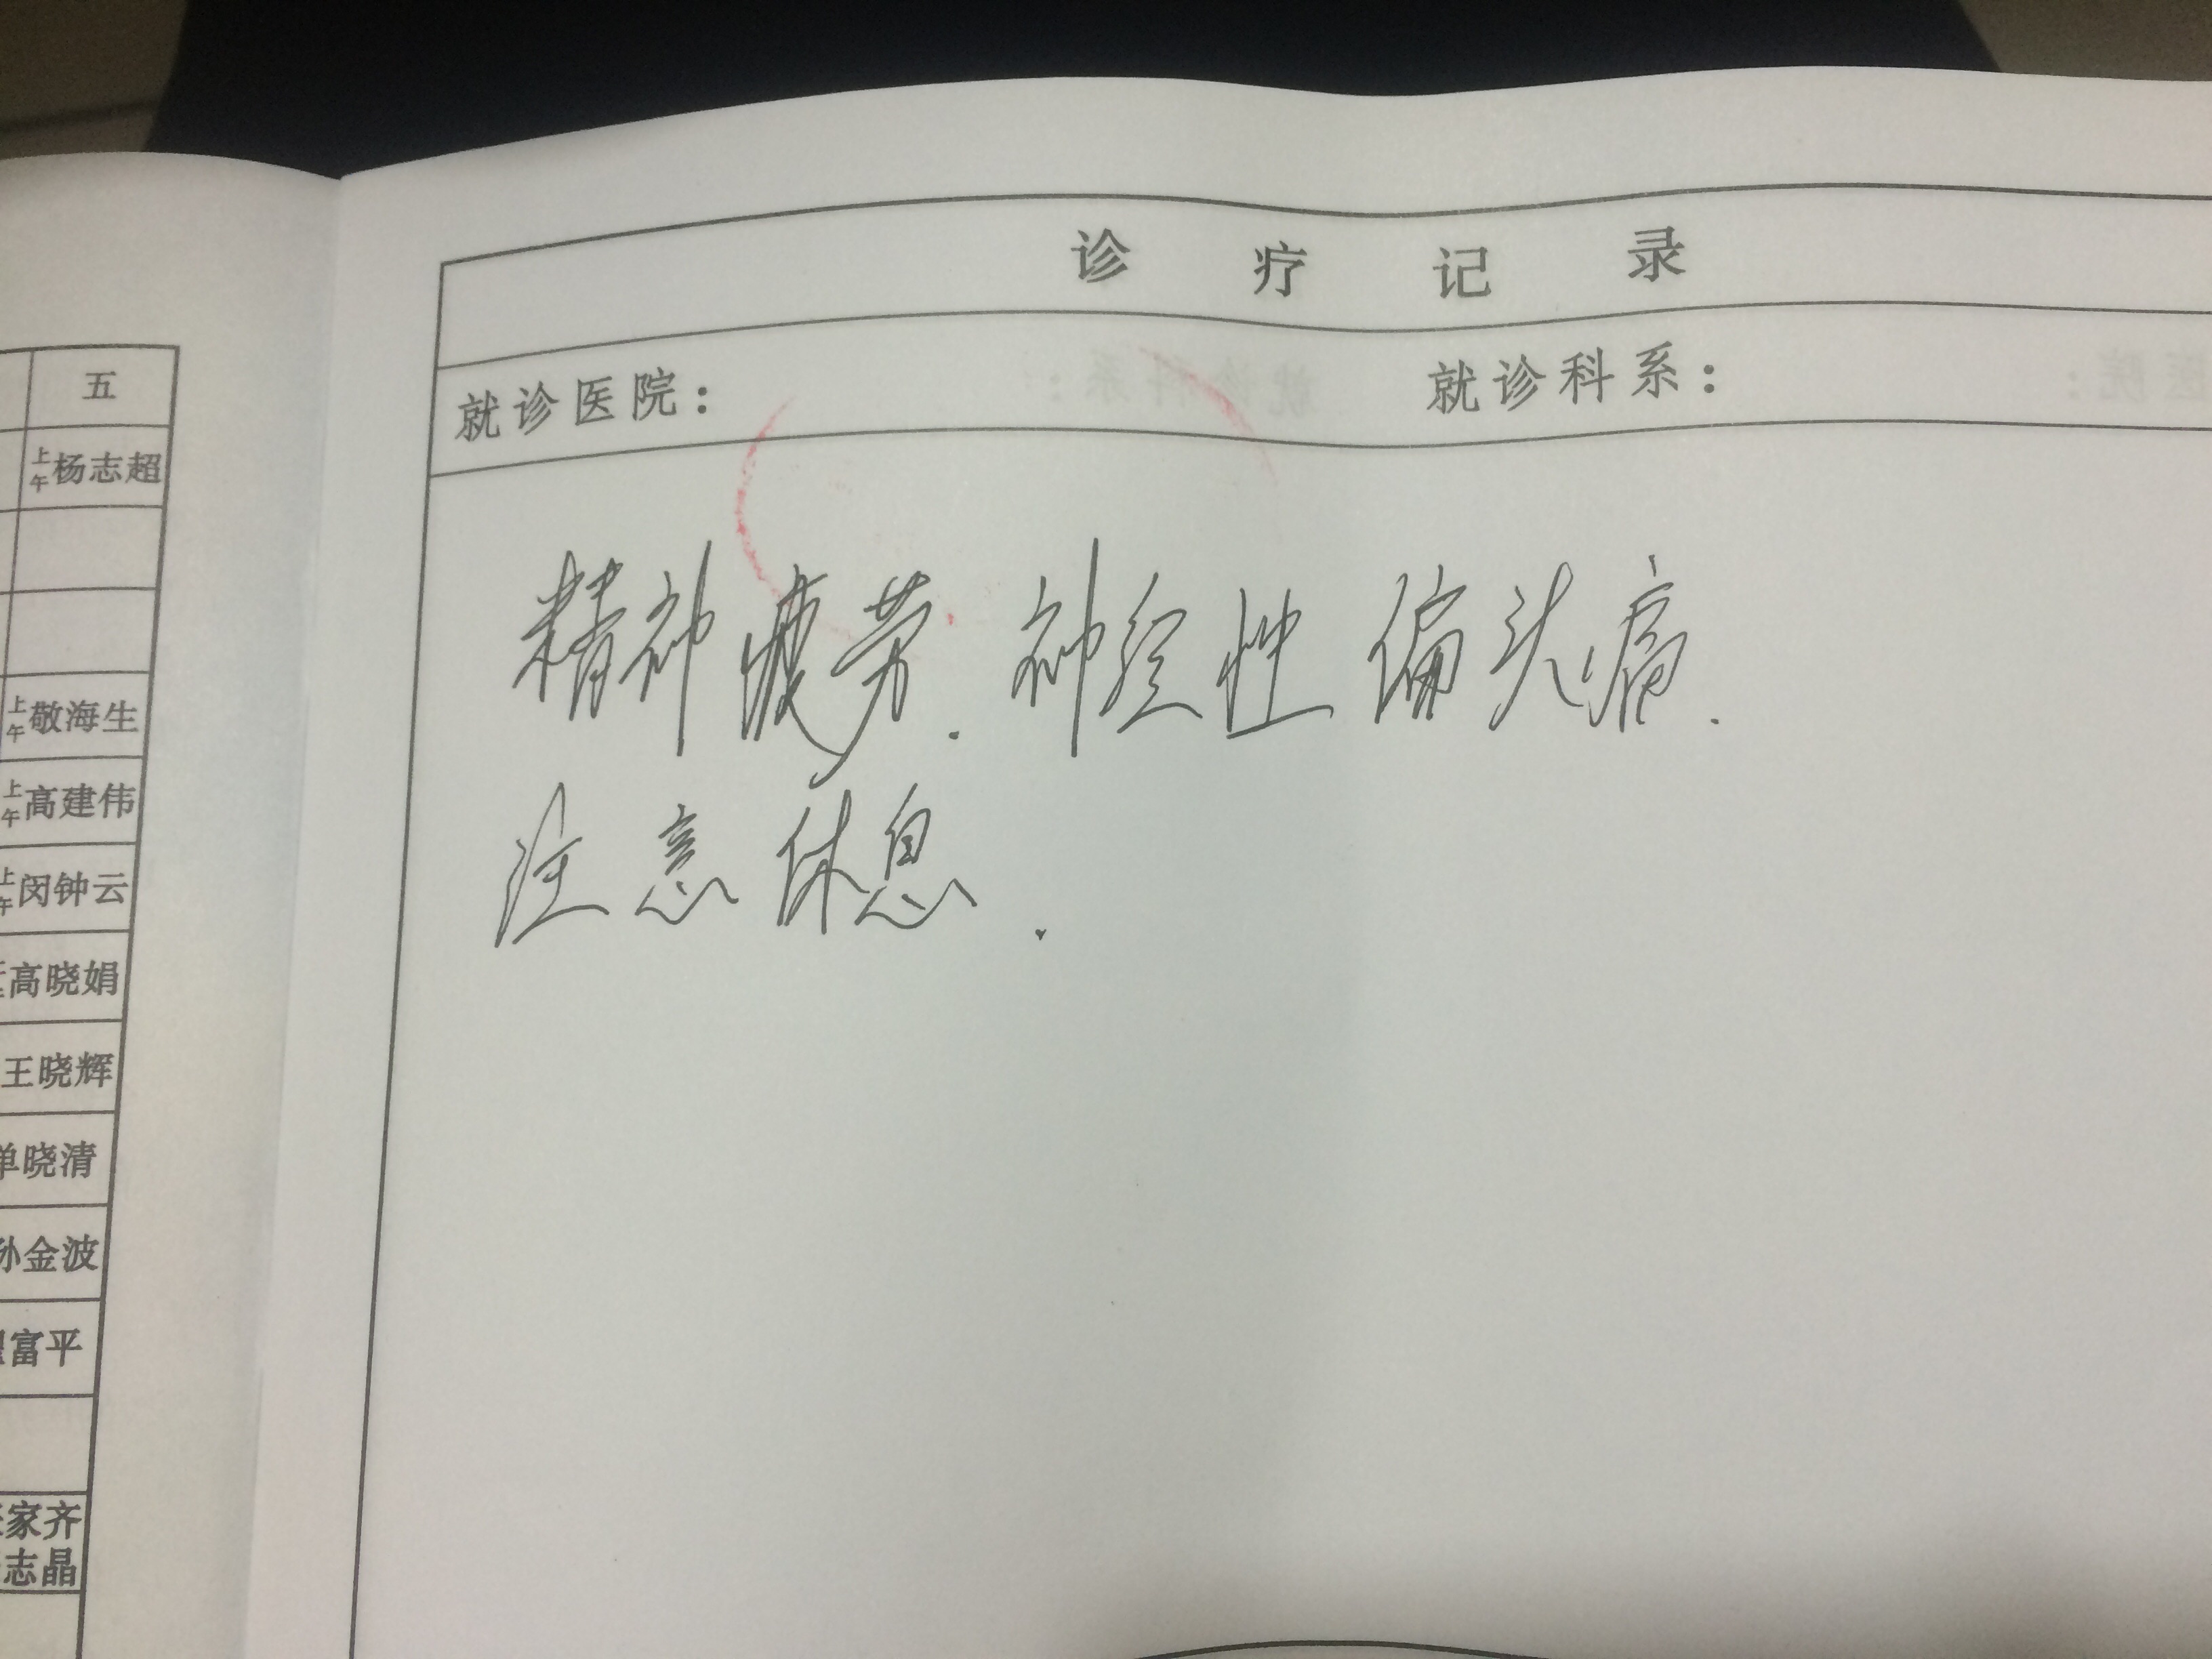 五
上午 杨志超
上午 敬海生
上午 高建伟
上午 闵钟云
高晓娟
王晓辉
单晓清
孙金波
富平
家齐
志晶
诊疗记录
就诊医院： 就诊科系：
精神疲劳. 神经性偏头痛.
注意休息.